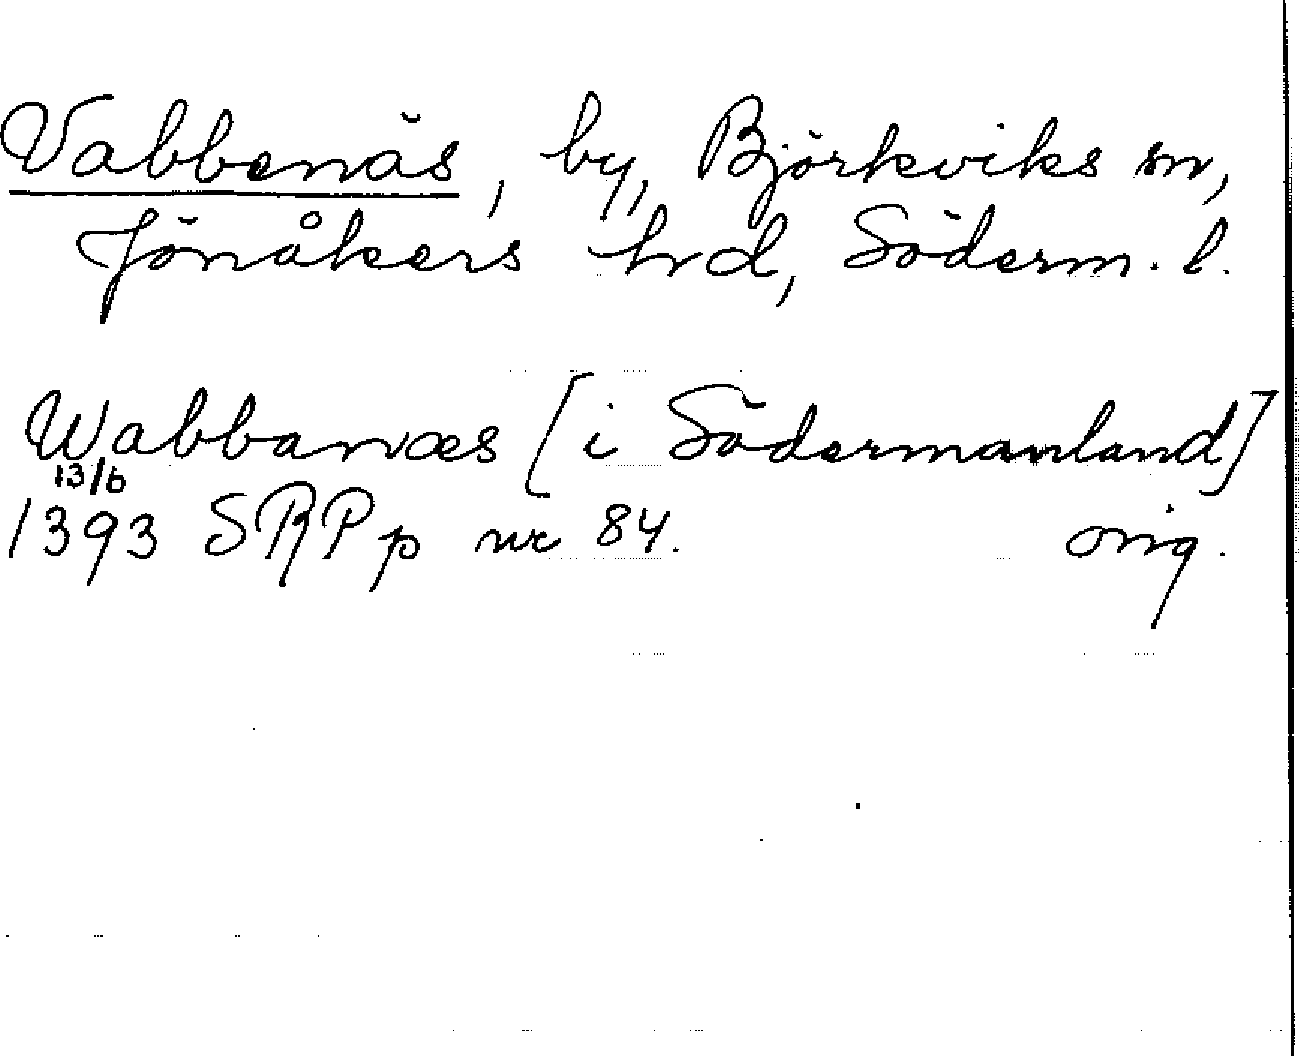 Vabbenäs, by, Björkviks sn,
Jönåkers hrd, Söderm. l.
Wabbanæs [i Södermanland]
13/6
1393 SRPp nr 84. orig.